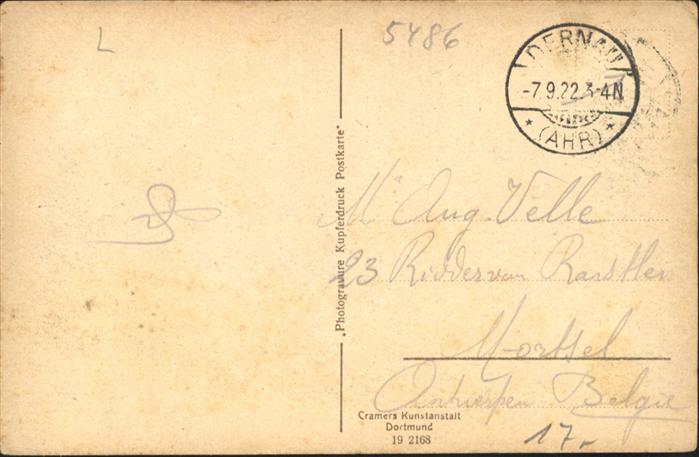 L
5486
DERNAU
-7.9.22.3-4N
* (AHR) *
„Photogravure Kupferdruck Postkarte"
Mr Aug. Velle
23 Ridder van
Mortsel
Antwerpen Belgie
Cramers Kunstanstalt
Dortmund
19 2168
17.-